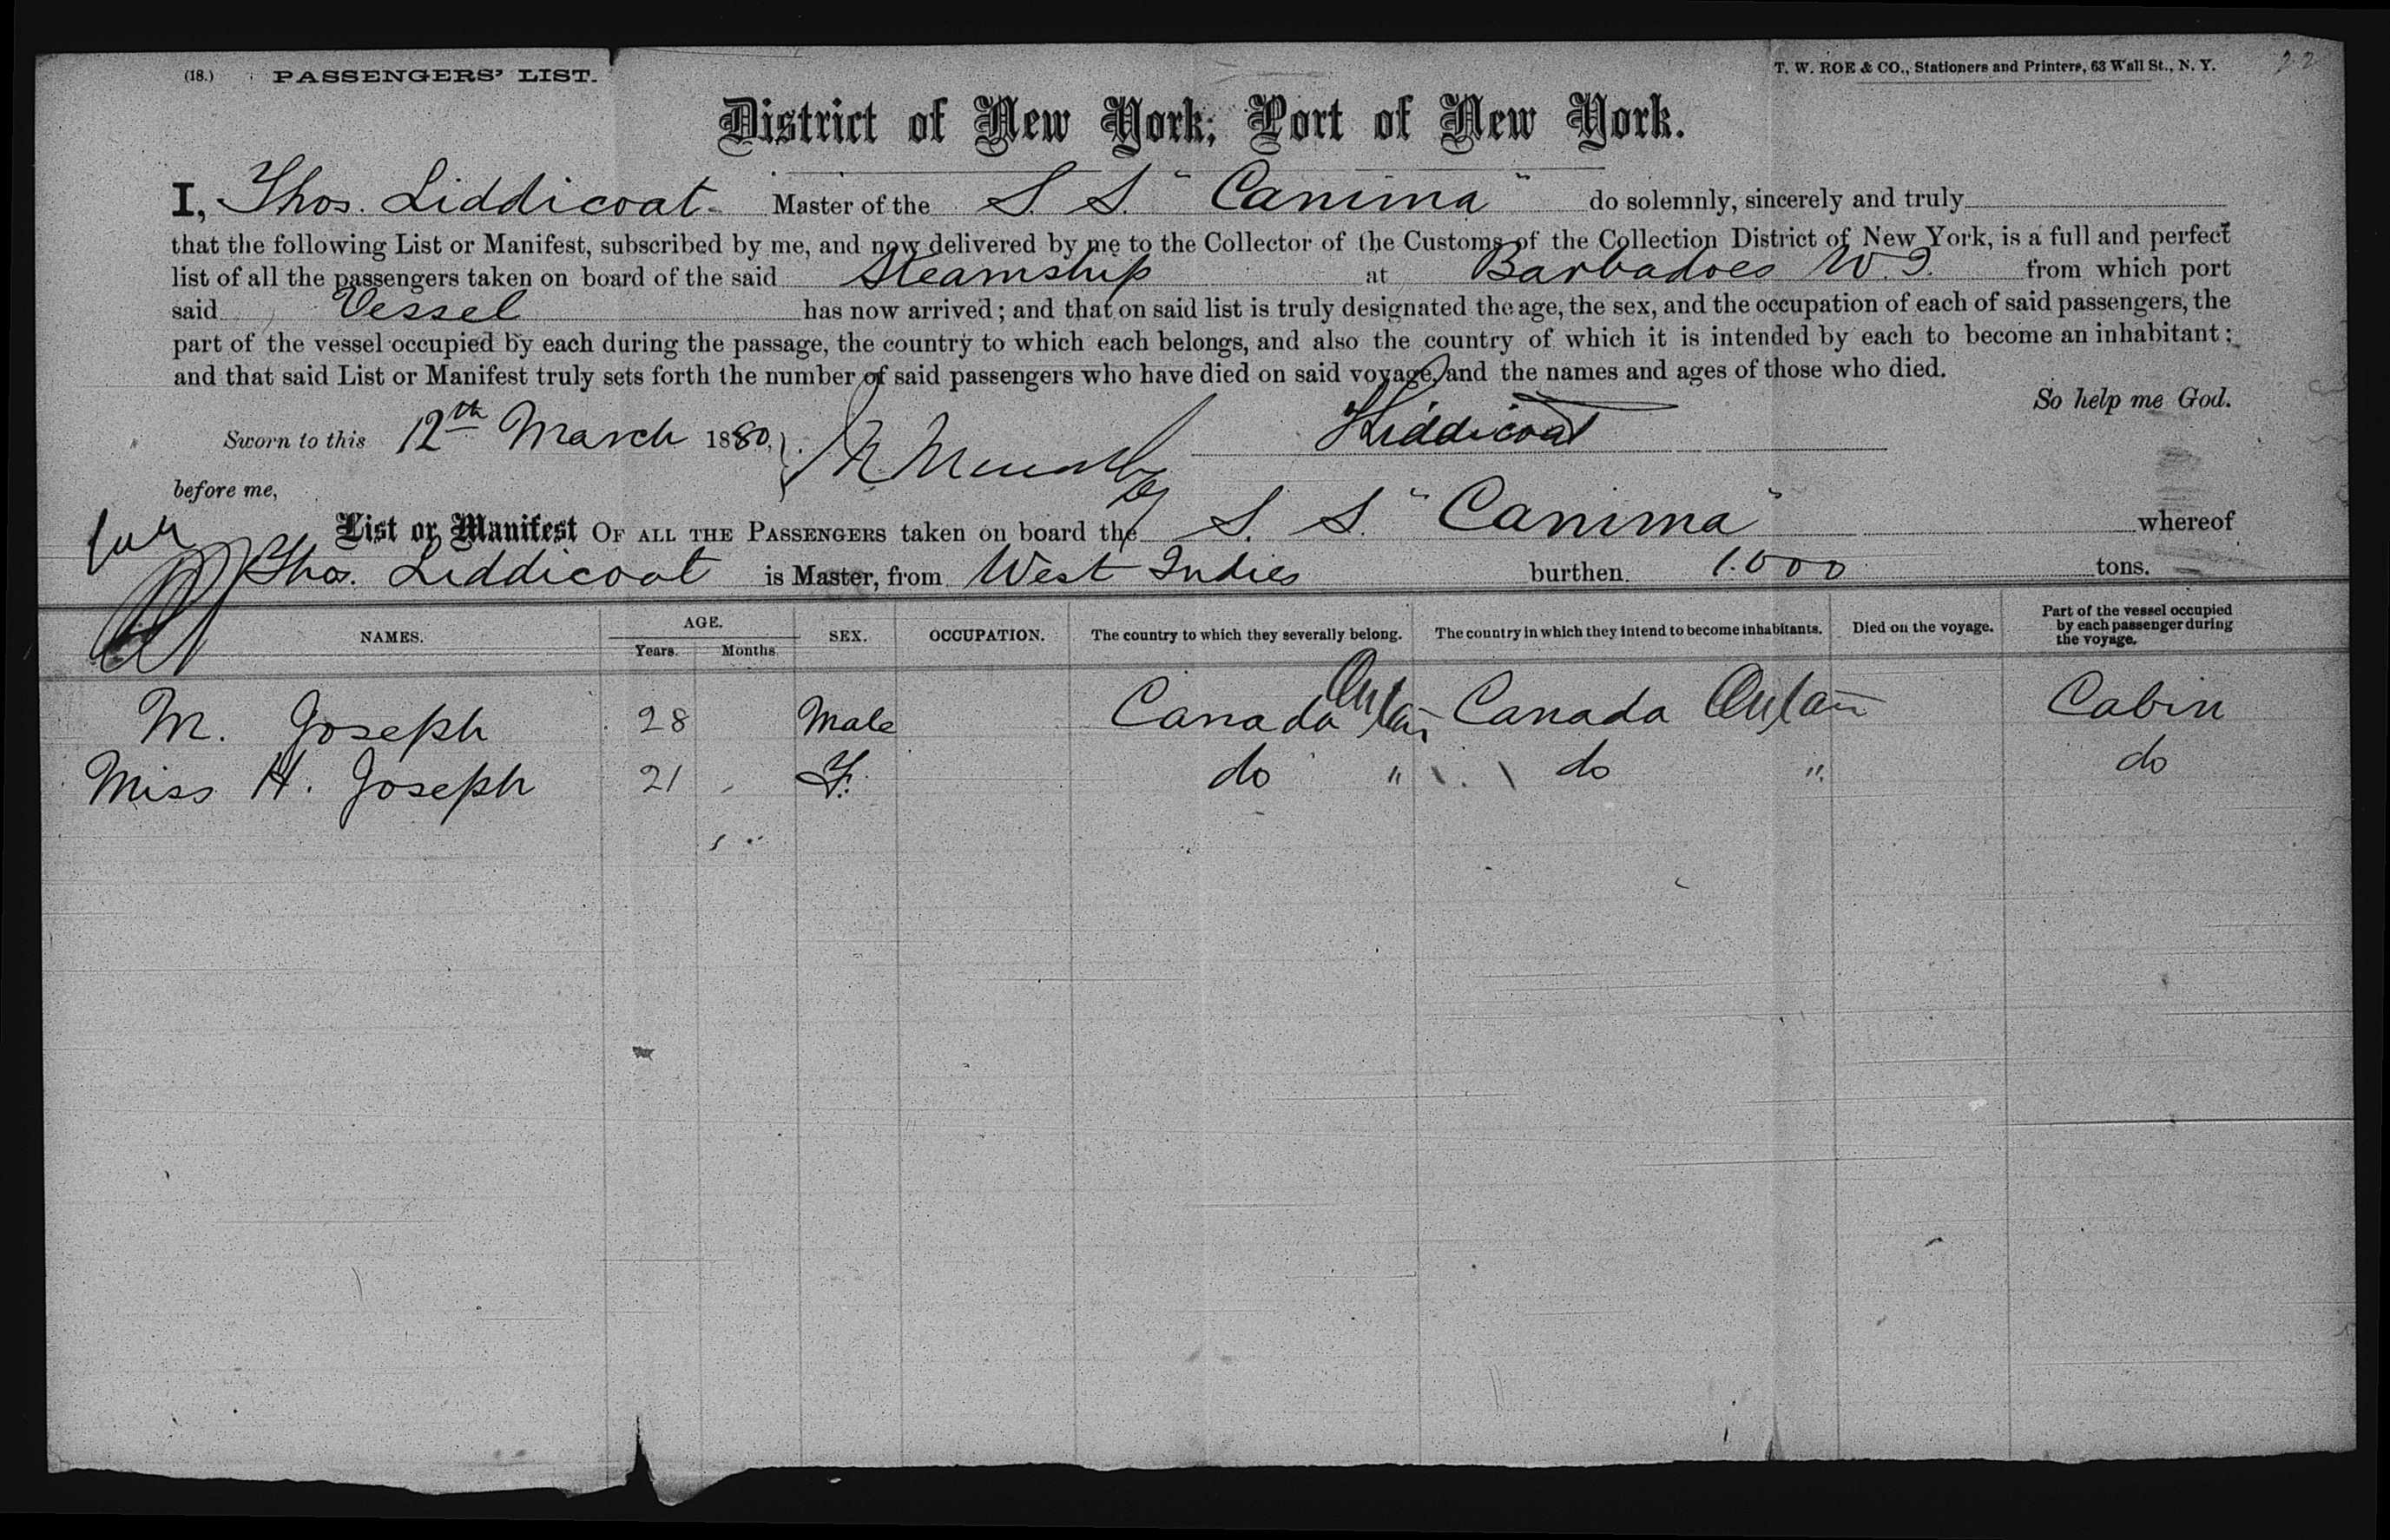 (18.) PASSENGERS' LIST. T. W. ROE & CO., Stationers and Printers, 63 Wall St., N. Y. 22
District of New York; Port of New York.
I, Thos. Liddicoat Master of the S. S. "Canima" do solemnly, sincerely and truly
that the following List or Manifest, subscribed by me, and now delivered by me to the Collector of the Customs of the Collection District of New York, is a full and perfect
list of all the passengers taken on board of the said Steamship at Barbadoes W. I. from which port
said Vessel has now arrived; and that on said list is truly designated the age, the sex, and the occupation of each of said passengers, the
part of the vessel occupied by each during the passage, the country to which each belongs, and also the country of which it is intended by each to become an inhabitant;
and that said List or Manifest truly sets forth the number of said passengers who have died on said voyage, and the names and ages of those who died.
So help me God.
Sworn to this 12th March 1880, Liddicoat
before me,
List or Manifest OF ALL THE PASSENGERS taken on board the S. S. "Canima" whereof
Thos. Liddicoat is Master, from West Indies burthen 1.000 tons.
NAMES. AGE. Years. Months. SEX. OCCUPATION. The country to which they severally belong. The country in which they intend to become inhabitants. Died on the voyage. Part of the vessel occupied by each passenger during the voyage.
M. Joseph 28 Male Canada Canada Cabin
Miss H. Joseph 21 F. do " do " do